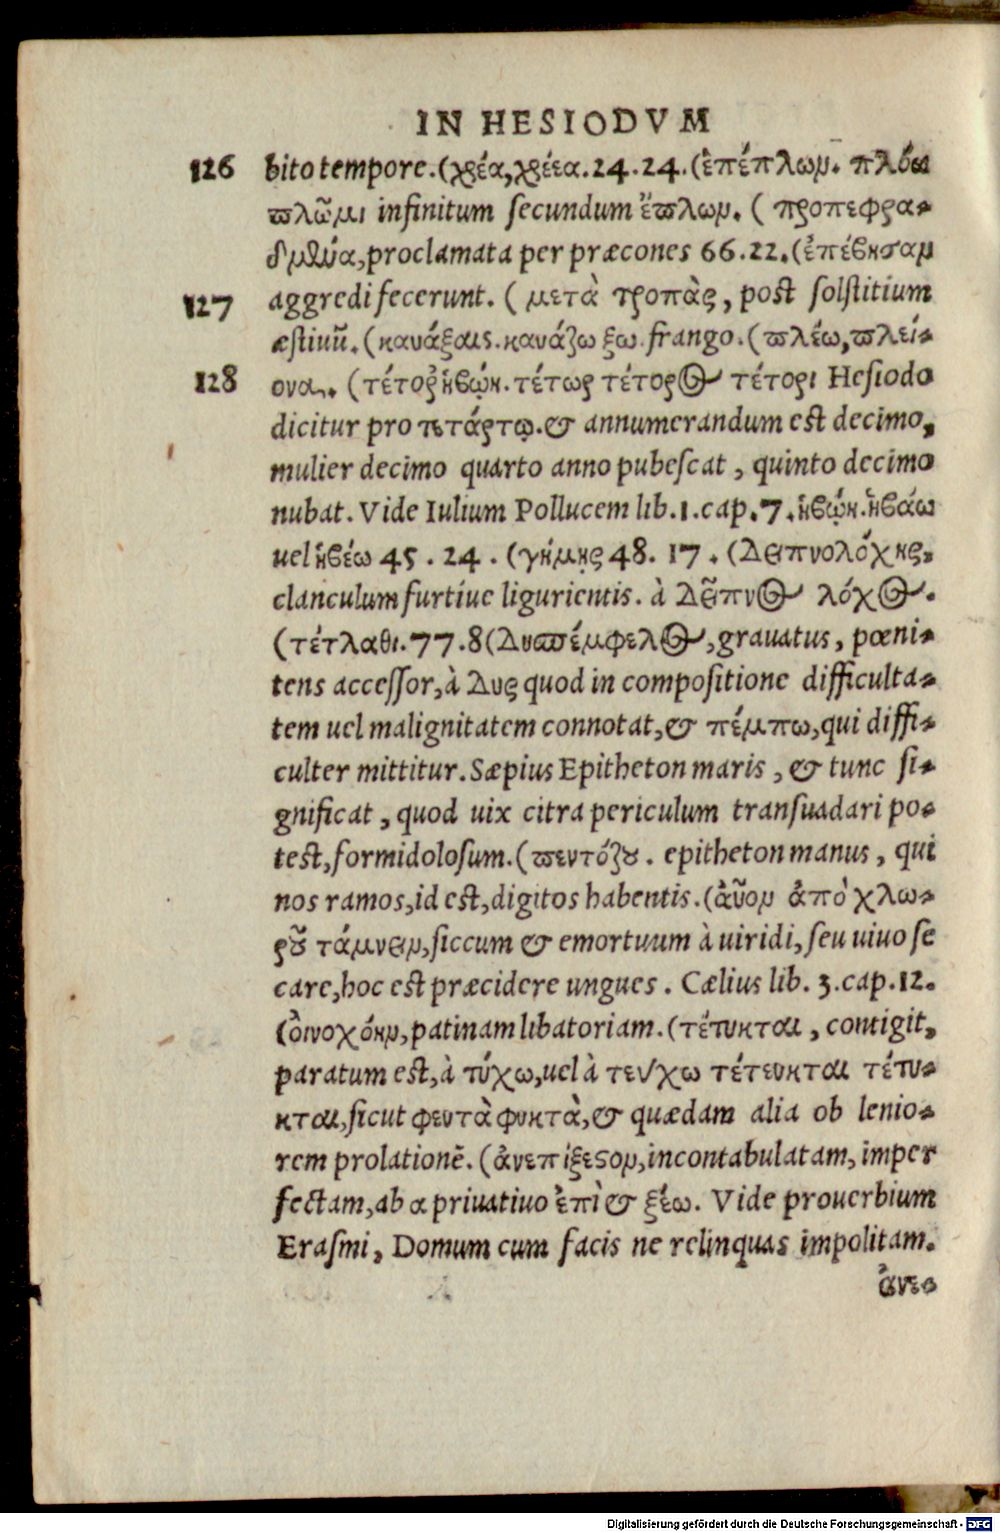 IN HESIODVM
126 bito tempore. (χρέα, χρέεα. 24. 24. (ἐπέπλωμ. πλόω
πλῶμι infinitum secundum ἔπλωμ. ( προπεφρα-
δμθύα, proclamata per præcones 66. 22. (ἐπέβησαμ
127 aggredi fecerunt. ( μετὰ τροπὰς, post solstitium
æstiuũ. (καυάξαις. καυάζω ξω frango. (πλέω, πλεί-
128 ονα. (τέτορ ἡβῴη. τέτωρ τέτορος τέτορι Hesiodo
dicitur pro τετάρτῳ. & annumerandum est decimo,
mulier decimo quarto anno pubescat, quinto decimo
nubat. Vide Iulium Pollucem lib. 1. cap. 7. ἡβῴη. ἡβάω
uel ἡβέω 45. 24. (γήμῃς 48. 17. (Δειπνολόχης,
clanculum furtiue ligurientis. à Δεῖπνος λόχος.
(τέτλαθι. 77. 8 (Δυσπέμφελος, grauatus, pœni-
tens accessor, à Δυς quod in compositione difficulta-
tem uel malignitatem connotat, & πέμπω, qui diffi-
culter mittitur. Sæpius Epitheton maris, & tunc si-
gnificat, quod uix citra periculum transuadari po-
test, formidolosum. (πεντόζου. epitheton manus, qui
nos ramos, id est, digitos habentis. (ἀῦομ ἀπὸ χλω-
ροῦ τάμνειμ, siccum & emortuum à uiridi, seu uiuo se
care, hoc est præcidere ungues. Cælius lib. 3. cap. 12.
(ὀινοχόημ, patinam libatoriam. (τέτυκται, contigit,
paratum est, à τύχω, uel à τεύχω τέτευκται τέτυ-
κται, sicut φευτὰ φυκτὰ, & quædam alia ob lenio-
rem prolationē. (ἀνεπίξεστομ, incontabulatam, imper
fectam, ab α priuatiuo ἐπὶ & ξέω. Vide prouerbium
Erasmi, Domum cum facis ne relinquas impolitam.
ἀνε-
Digitalisierung gefördert durch die Deutsche Forschungsgemeinschaft - DFG